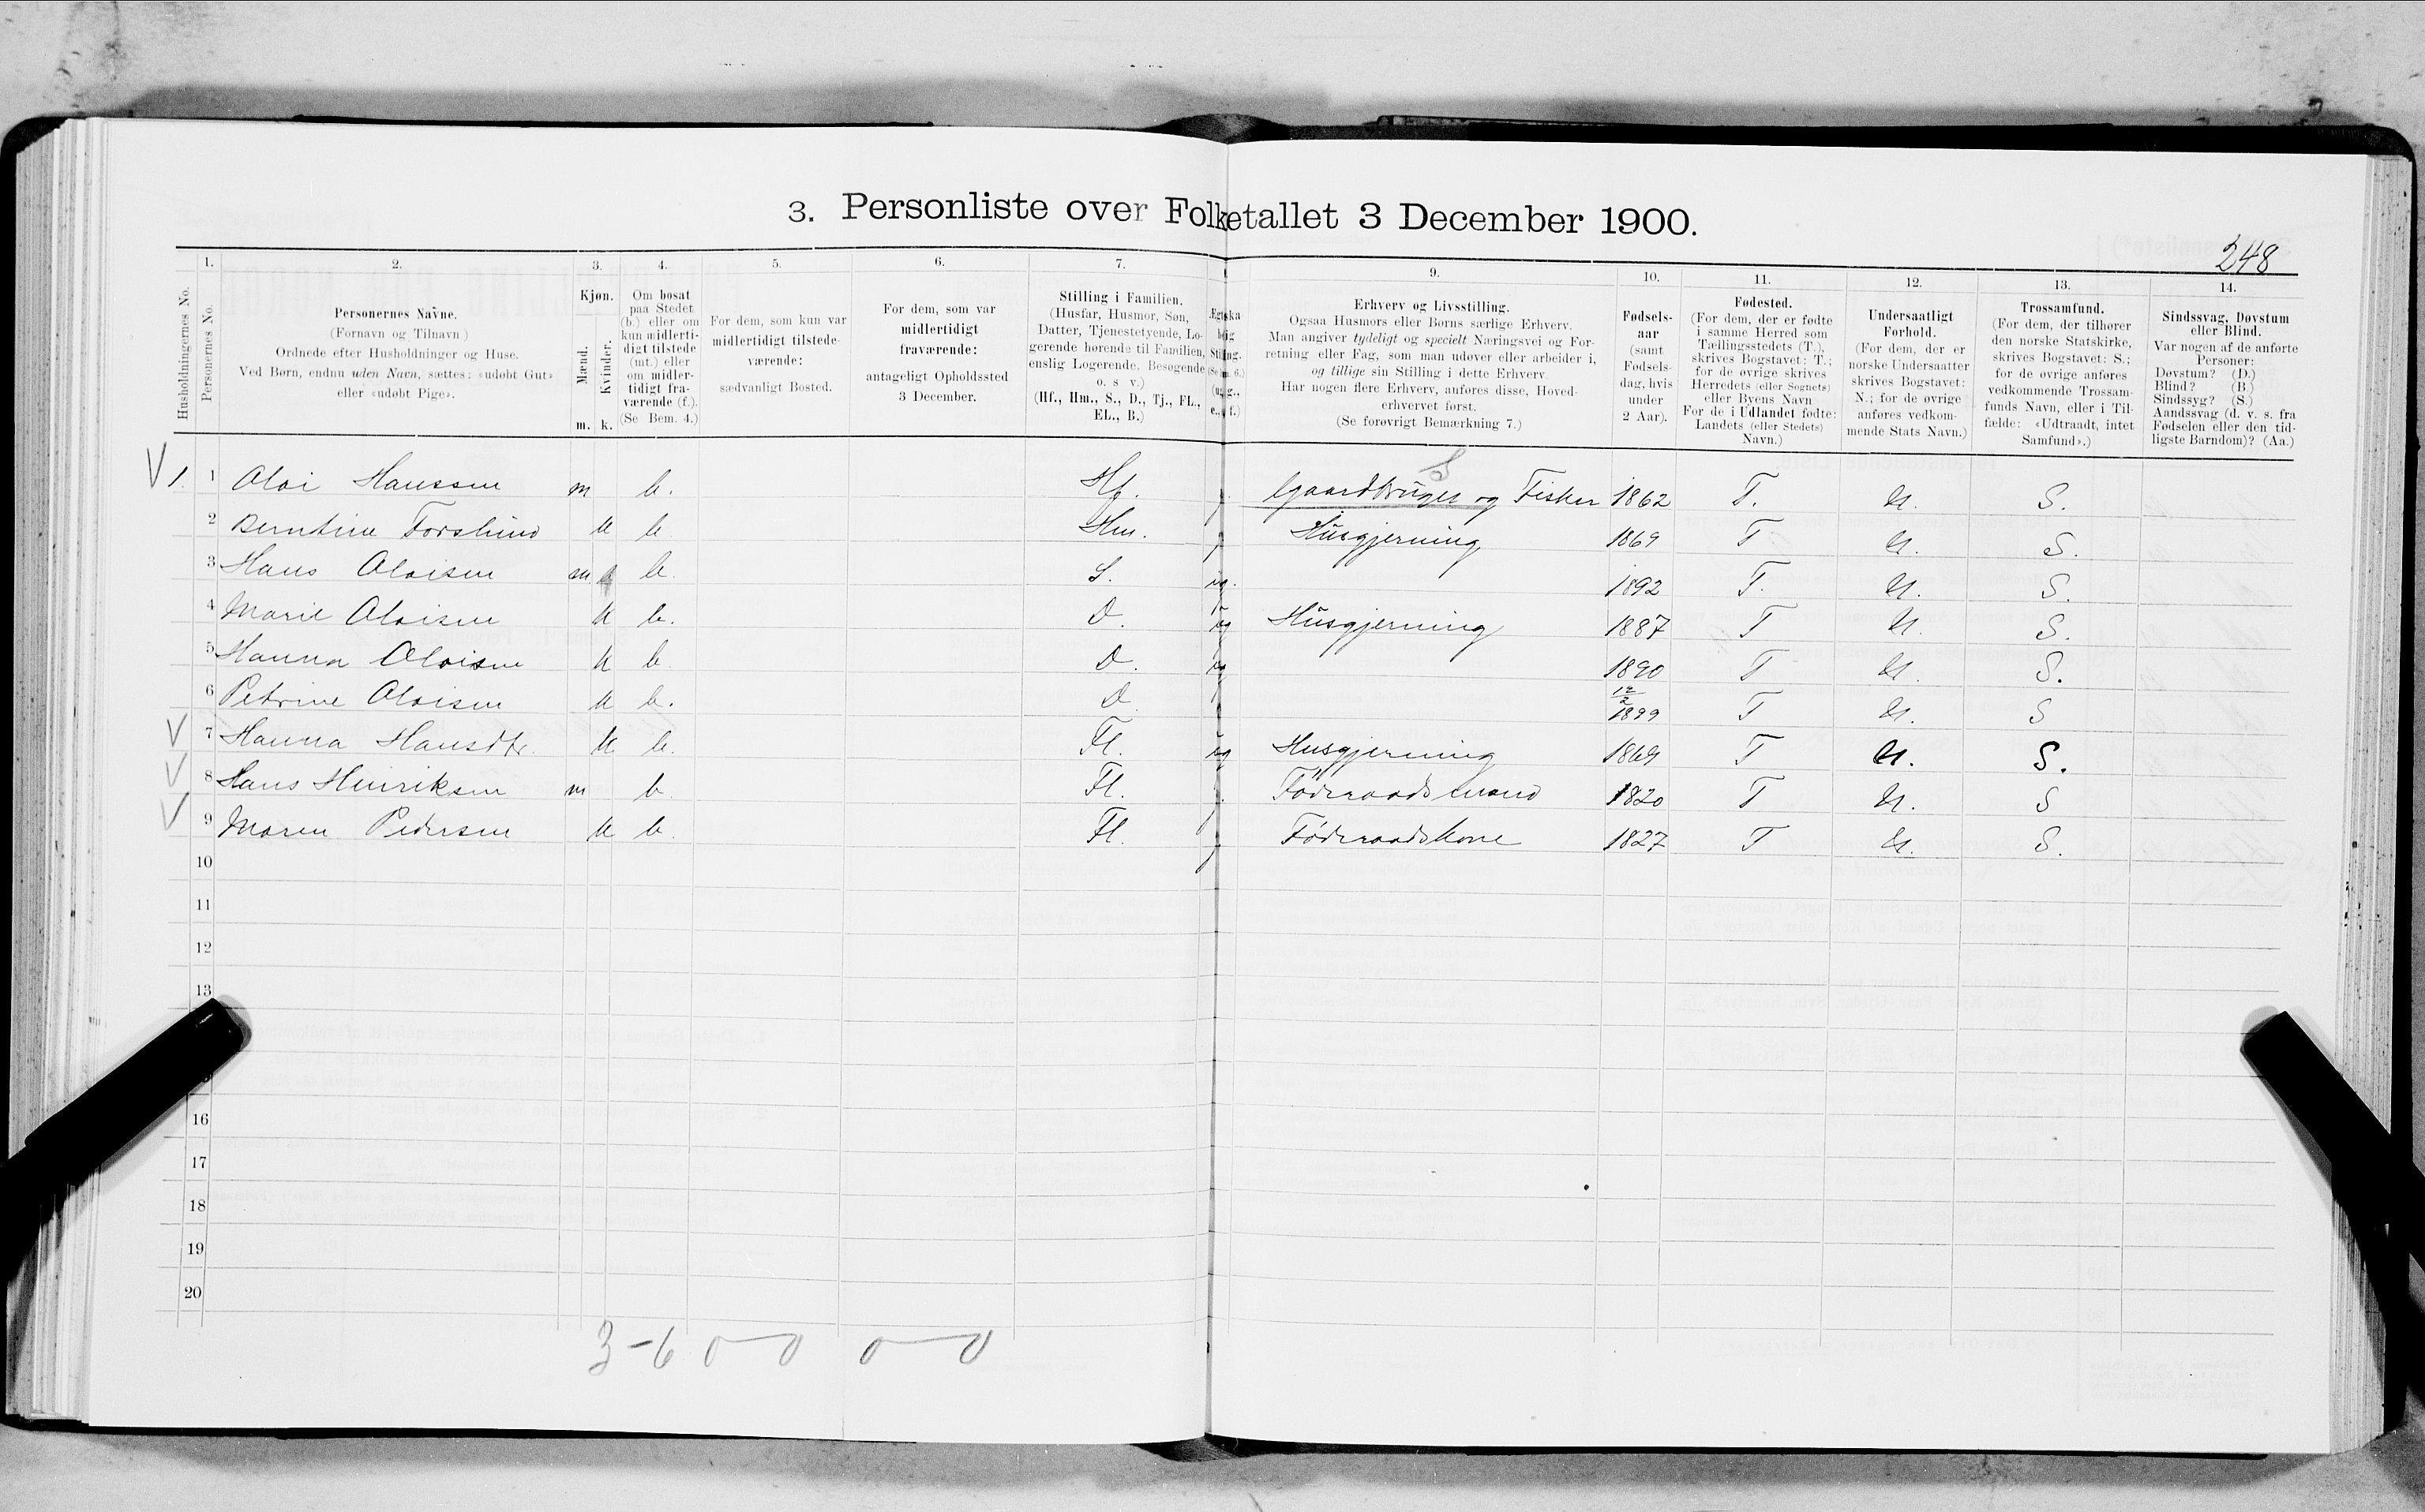 3. Personliste over Folketallet 3 December 1900.
248
Husholdningernes No.
1.
Personernes No.
2.
Personernes Navne.
(Fornavn og Tilnavn)
Ordnede efter Husholdninger og Huse.
Ved Børn, endnu uden Navn, sættes: «udøbt Gut»
eller «udøbt Pige».
3.
Kjøn.
Mænd.
Kvinder.
m. k.
4.
Om bosat
paa Stedet
(b.) eller om
kun midlerti-
digt tilstede
(mt.) eller
om midler-
tidigt fra-
værende (f.).
(Se Bem. 4.)
5.
For dem, som kun var
midlertidigt tilstede-
værende:
sædvanligt Bosted.
6.
For dem, som var
midlertidigt
fraværende:
antageligt Opholdssted
3 December.
7.
Stilling i Familien.
(Husfar, Husmor, Søn,
Datter, Tjenestetyende, Lo-
gerende hørende til Familien,
enslig Logerende, Besøgende
o. s v.)
(Hf., Hm., S., D., Tj., FL.,
EL., B.)
9.
Erhverv og Livsstilling.
Ogsaa Husmors eller Børns særlige Erhverv.
Man angiver tydeligt og specielt Næringsvei og For-
retning eller Fag, som man udøver eller arbeider i,
og tillige sin Stilling i dette Erhverv.
Har nogen flere Erhverv, anføres disse, Hoved-
erhvervet først.
(Se forøvrigt Bemærkning 7.)
10.
Fødsels-
aar
(samt
Fødsels-
dag, hvis
under
2 Aar).
11.
Fødested.
(For dem, der er fødte
i samme Herred som
Tællingsstedets (T.),
skrives Bogstavet: T.;
for de øvrige skrives
Herredets (eller Sognets)
eller Byens Navn
For de i Udlandet fødte:
Landets (eller Stedets)
Navn.)
12.
Undersaatligt
Forhold.
(For dem, der er
norske Undersaatter
skrives Bogstavet:
N.; for de øvrige
anføres vedkom-
mende Stats Navn.)
13.
Trossamfund.
(For dem, der tilhører
den norske Statskirke,
skrives Bogstavet: S.;
for de øvrige anføres
vedkommende Trossam-
funds Navn, eller i Til-
fælde: «Udtraadt, intet
Samfund».)
14.
Sindssvag, Døvstum
eller Blind.
Var nogen af de anførte
Personer:
Døvstum? (D.)
Blind? (B.)
Sindssyg? (S.)
Aandssvag (d. v. s. fra
Fødselen eller den tid-
ligste Barndom)? (Aa.)
1. 1 Aloi Hanssen m b. Hf. Gaardbruger og Fisker 1862 T. N. S.
2 Berntine Forslund k b Hm. Husgjerning 1869 T N. S.
3 Hans Aloisen m b. S. ug. 1892 T. N. S.
4 Marie Aloisen k b. D. ug Husgjerning 1887 T N. S.
5 Hanna Aloisen k b. D. ug 1890 T N. S.
6 Petrine Aloisen k b. D 12/2 1899 T N. S
7 Hanna Hansdtr. k b. Fl. ug Husgjerning 1869 T N. S.
8 Hans Hinriksen m b. Fl. Føderaadsmand 1820 T N. S
9 Maren Pedersen k b. Fl. Føderaadskone 1827 T N. S.
10
11
12
13
16
17
18
19
20
3-6 0 0 0 0